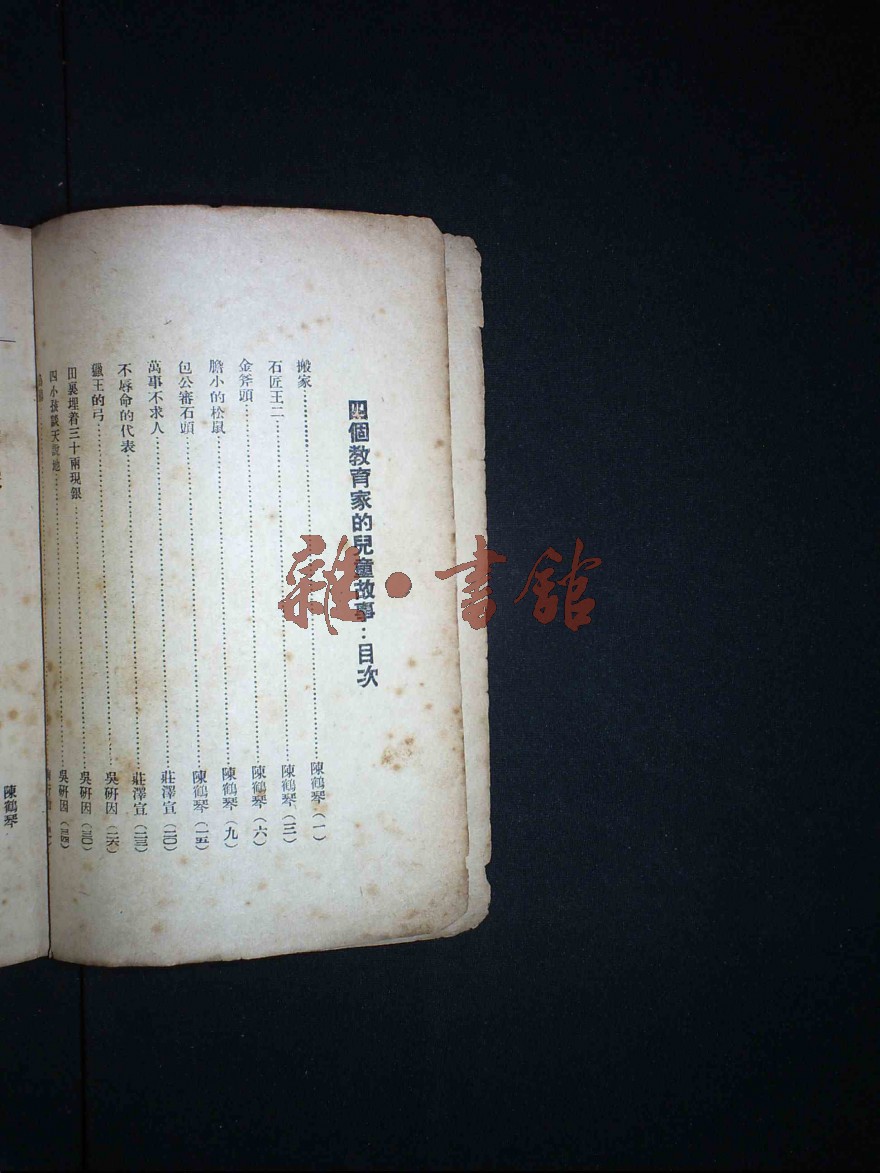 四個教育家的兒童故事：目次
搬家…陳鶴琴（一）
石匠王二…陳鶴琴（三）
金斧頭…陳鶴琴（六）
膽小的松鼠…陳鶴琴（九）
包公審石頭…陳鶴琴（一五）
萬事不求人…莊澤宣（二〇）
不辱命的代表…莊澤宣（二三）
獵王的弓…吳研因（二六）
田裏埋着三十兩現銀…吳研因（三〇）
四小孩談天說地…吳研因（三四）
陳鶴琴
雜·書館